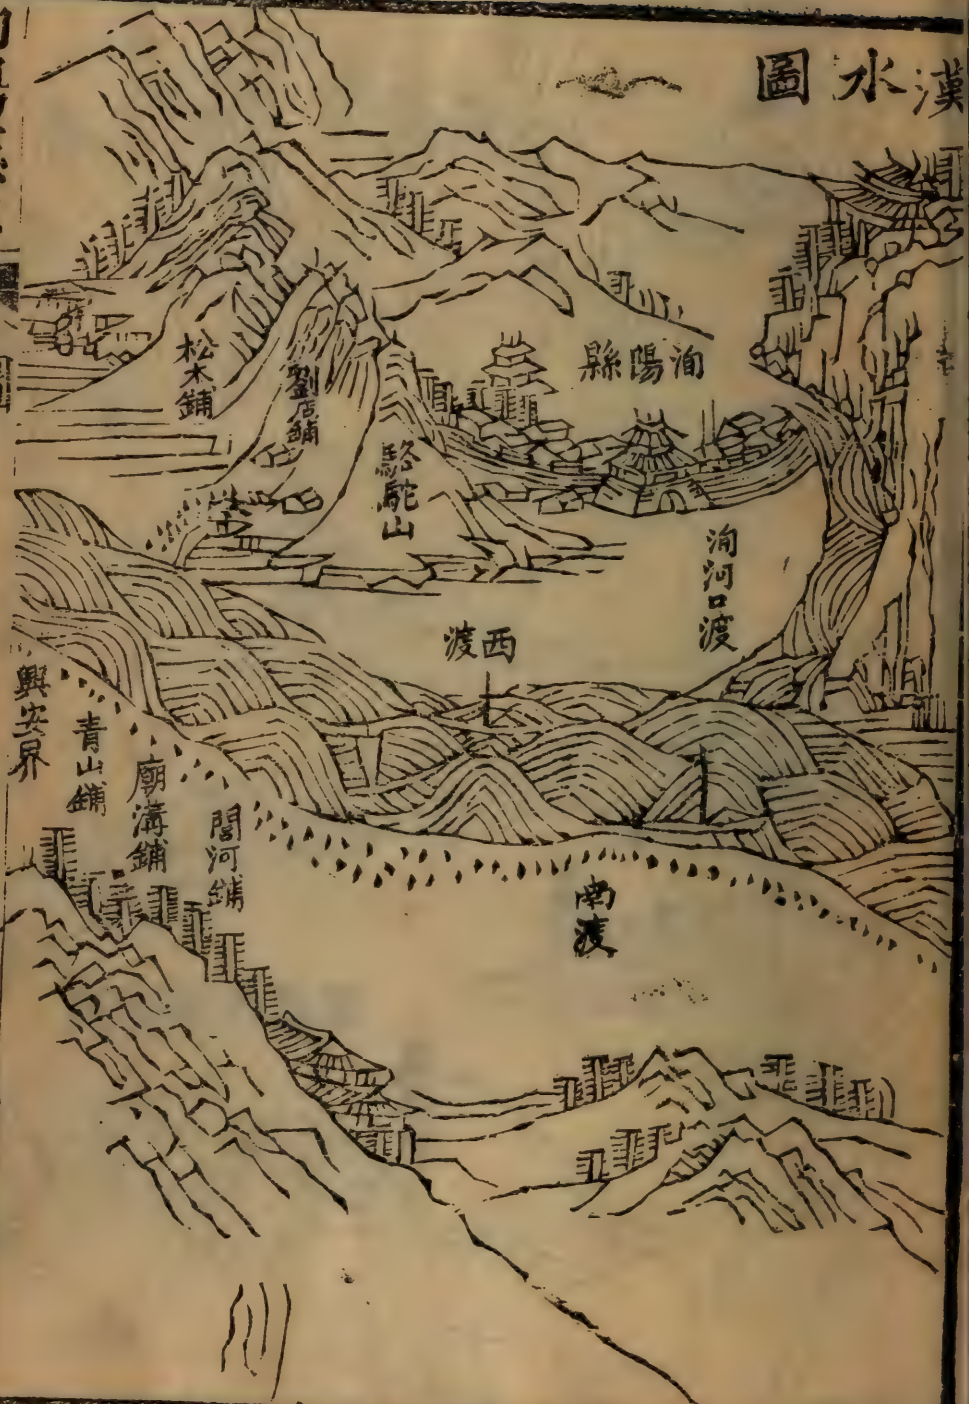 漢水圖
洵陽縣
松木鋪
劉店鋪
駱駝山
洵河口渡
西渡
興安界
青山鋪
廟溝鋪
閭河鋪
南渡